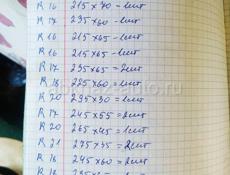 R 16 215 x 70 - 1шт
R 17 235 x 60 - 1шт
R 16 215 x 65 - 1шт
R 16 215 x 65 - 1шт
R 17 235 x 65 = 2шт
R 18 225 x 60 = 1шт
R 20 295 x 30 = 1шт
R 17 245 x 55 = 2шт
R 20 265 x 45 = 1шт
R 21 275 x 35 = 2шт
R 18 245 x 60 = 2шт